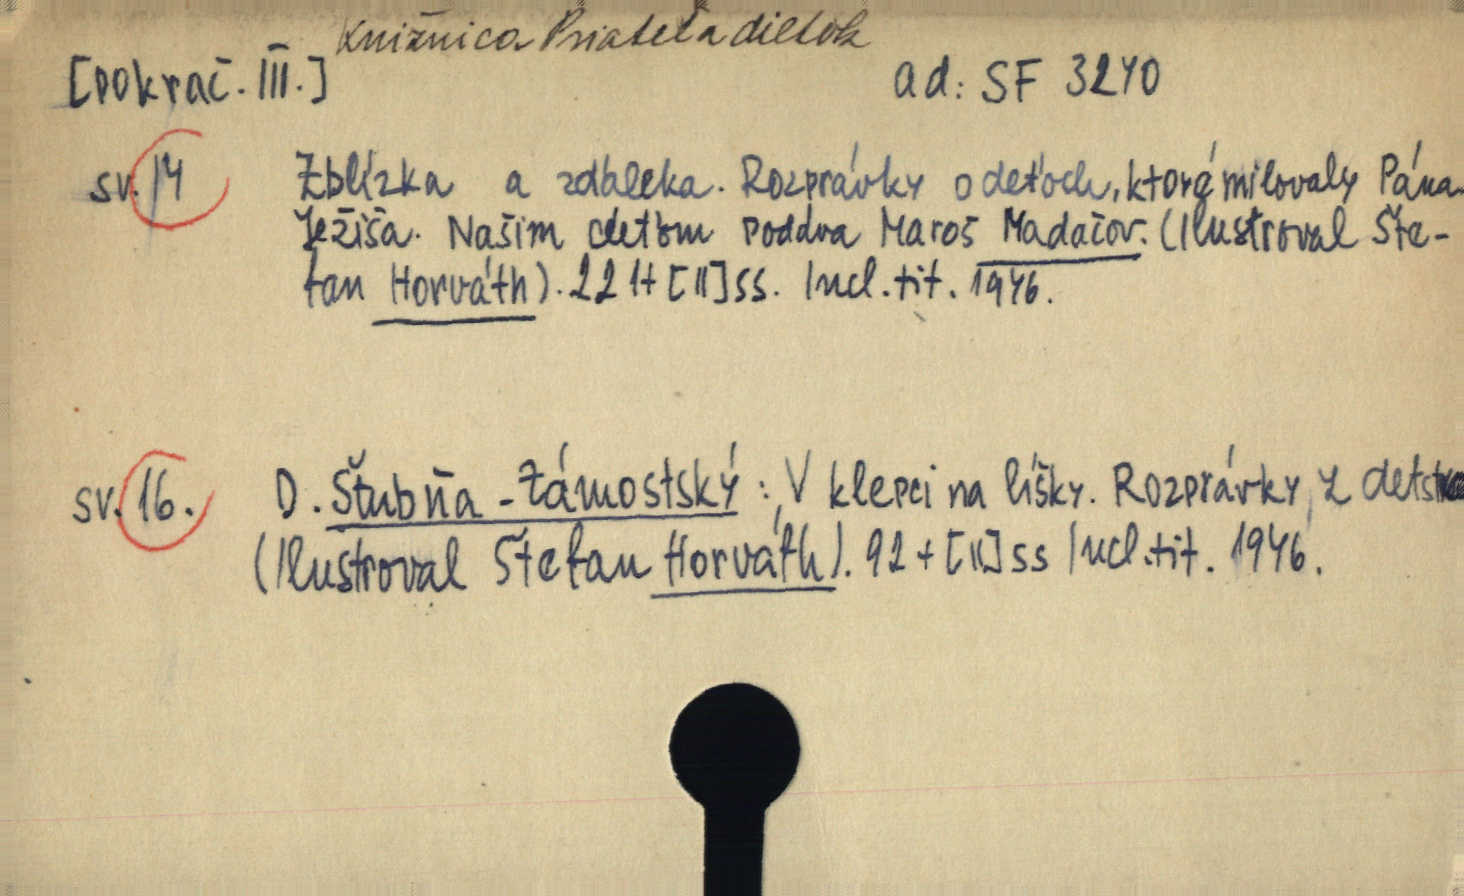 Knižnica Priateľa dietok
[pokrač. III.] ad: SF 3240
sv. 14 Zblízka a zďaleka. Rozprávky o deťoch, ktoré milovaly Pána
Ježiša. Našim deťom poddva Maroš Madačov. (Ilustroval Šte-
fan Horváth). 22 1+ [II] ss. Incl. tit. 1946.
sv. 16. D. Štubňa-Zámostský: V klepci na líšky. Rozprávky z detstva
(Ilustroval Štefan Horváth). 92 + [II] ss Incl. tit. 1946.